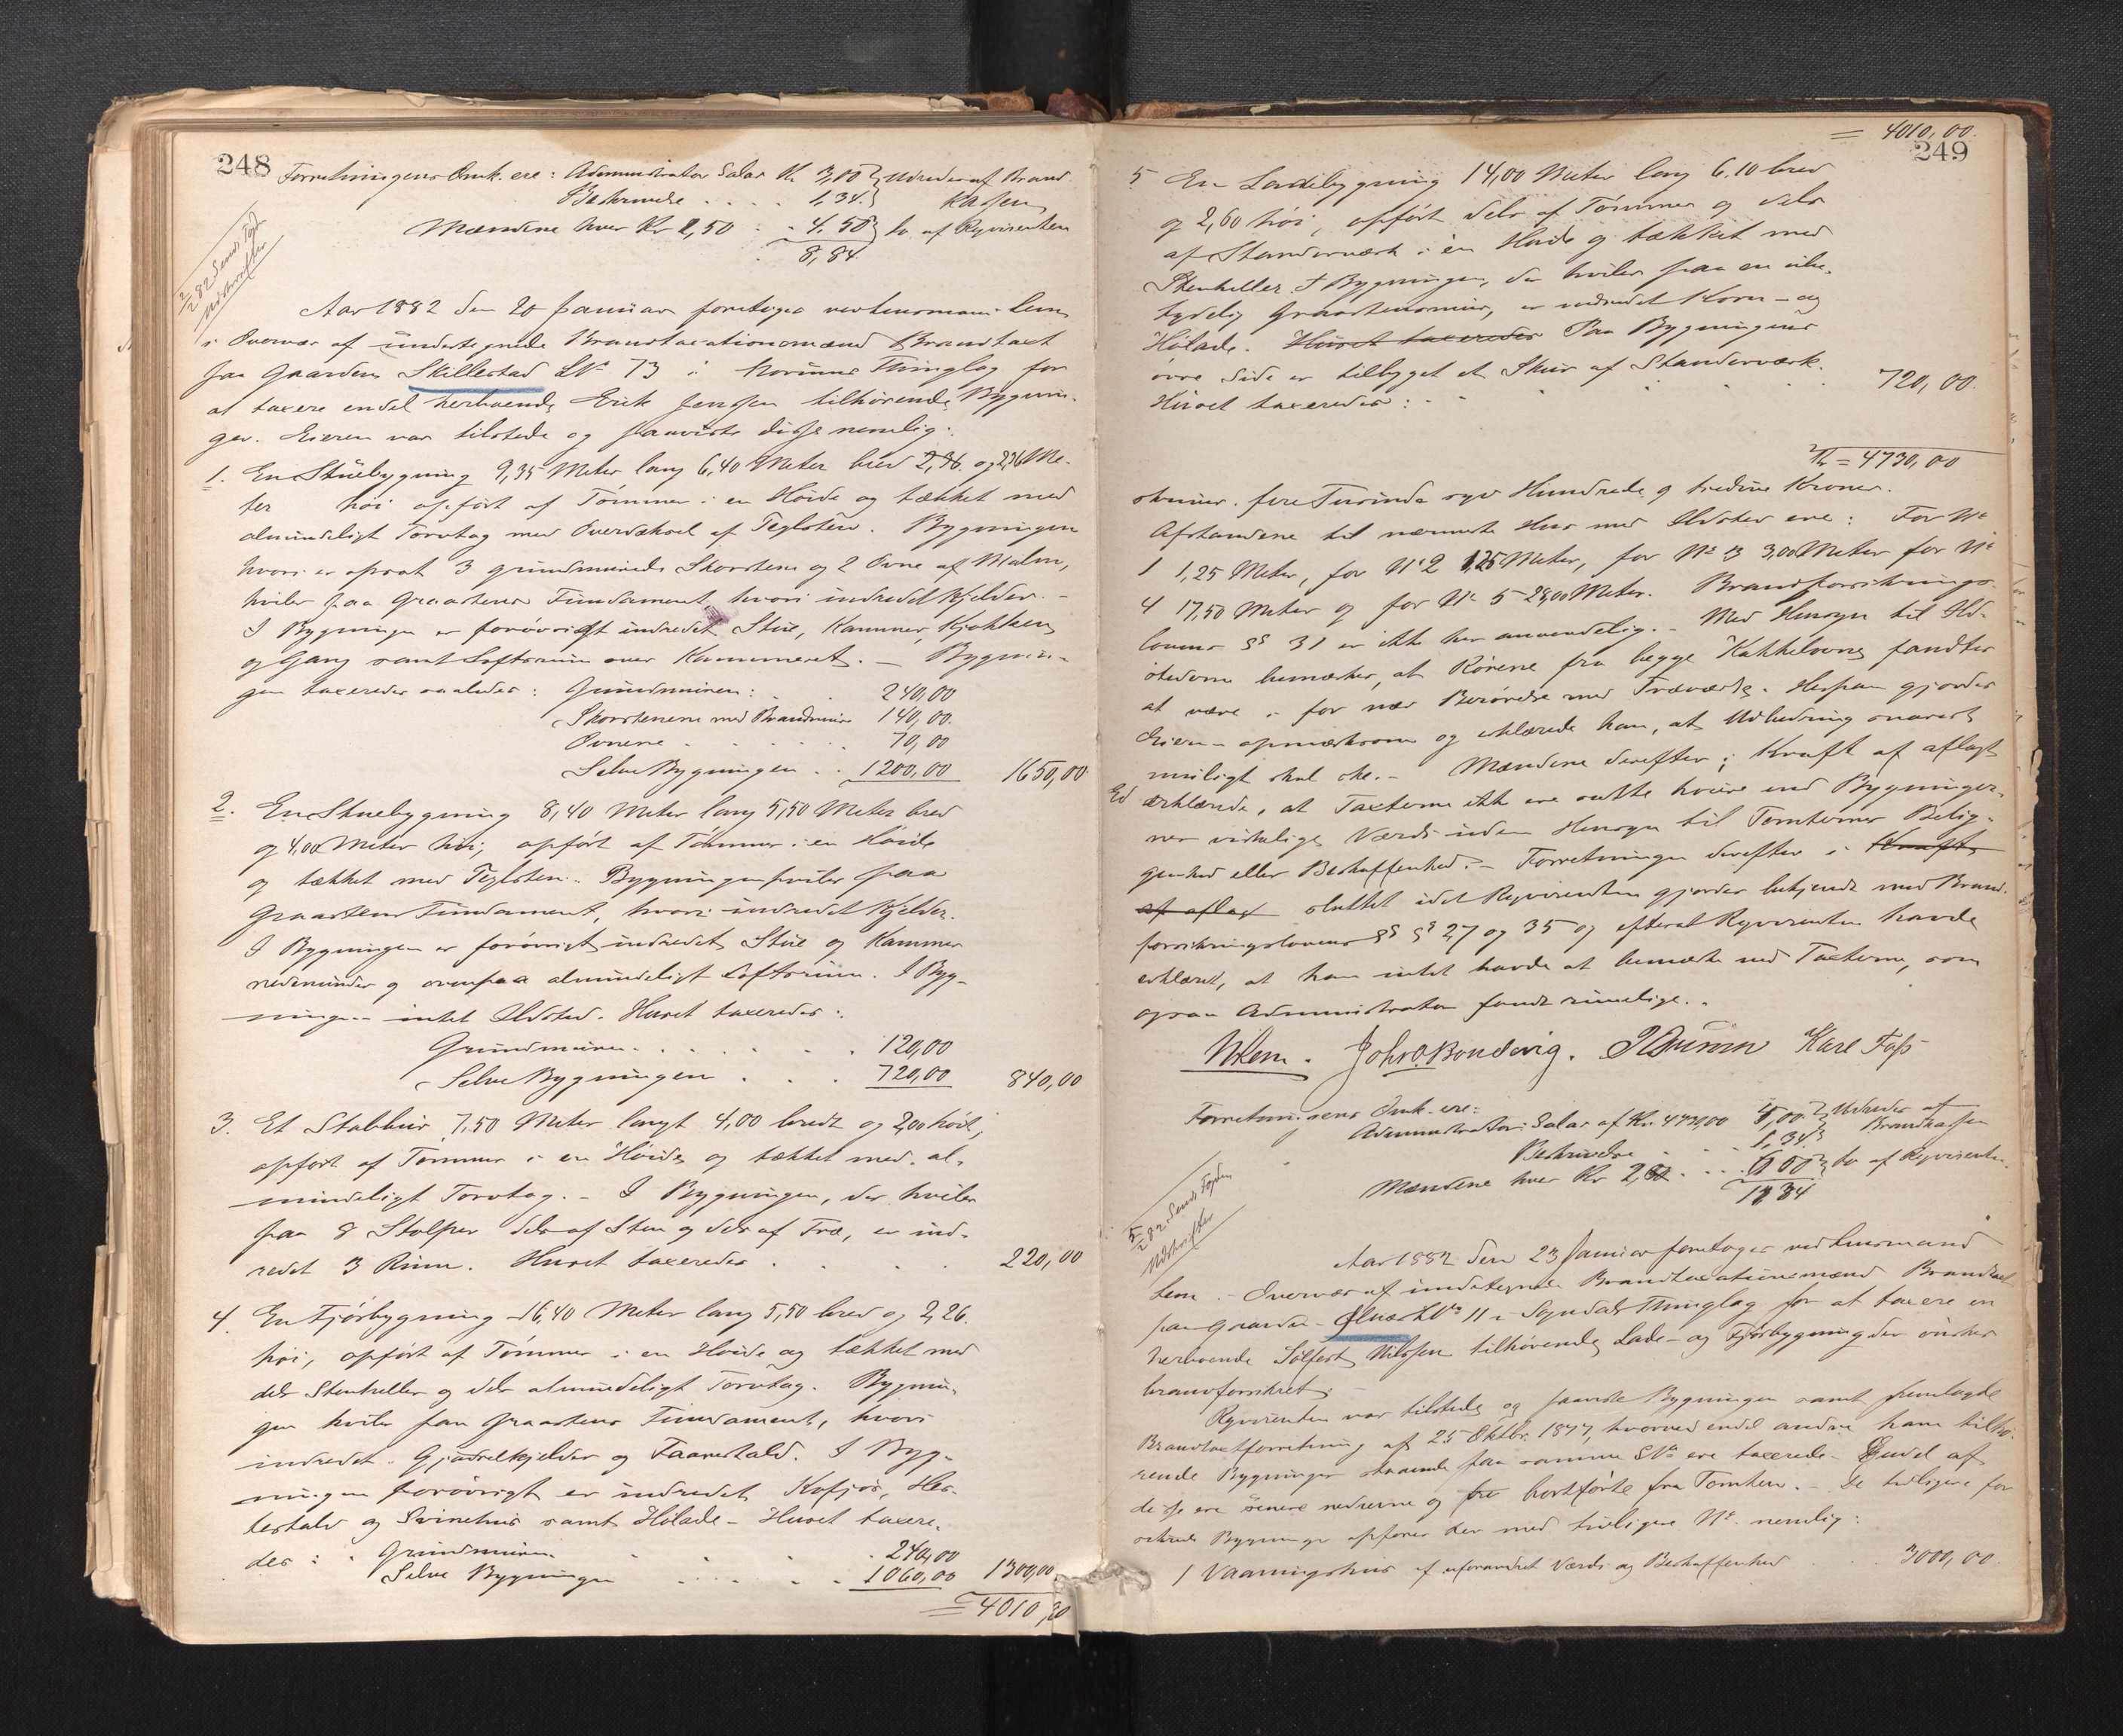 248
Forretningens Omk. ere: Administrator Salær Kr. 3,00 } Udredes af Brand
Beskrivelse . . . . 1,34 } kassen
Mændene hver Kr 1,50 . . 4.50 } do af Rqvirenten
8,84
2/2 82 Sendt Fogd
Udskrifter
Aar 1882 den 20 Januar foretoges ved Lensmand Lem
i Overvær af undertegnede Brandtaxationsmænd Brandtaxt
paa Gaarden Skillestad LNr 73 i Norums Thinglag for
at taxere endel herboende Erik Jenssen tilhørende Bygnin-
ger. Eieren var tilstede og paaviste disse nemlig:
1. En Stuebygning 9,35 Meter lang 6,40 Meter bred og 2,36 Me-
ter høi opført af Tømmer i en Høide og tækket med
almindeligt Torvtag med Overdæksel af Teglsten. Bygningen
hvori er opsat 3 grundmurede Skorstene og 2 Ovne af Malm,
hviler paa Graastens Fundament, hvori indredet Kjelder. -
I Bygningen er forøvrigt indredet Stue, Kammer, Kjøkken
og Gang samt Loftsrum over Kammeret. - Bygnin-
gen taxeredes saaledes: Grundmuren: . . 240,00
Skorstenene med Brandmure 140,00.
Ovnene . . . . . . 70,00
Selve Bygningen . . 1200,00 1650,00
2. En Stuebygning 8,40 Meter lang 5,50 Meter bred
og 4,00 Meter høi, opført af Tømmer i en Høide
og tækket med Teglsten. Bygningen hviler paa
Graastens Fundament, hvori indredet Kjelder.
I Bygningen er forøvrigt indredet Stue og Kammer
nedenunder og ovenpaa almindeligt Loftsrum. I Byg-
ningen intet Ildsted. Huset taxeredes:
Grundmuren . . . . . . 120,00
Selve Bygningen . . . 720,00 840,00
3. Et Stabbur 7,50 Meter langt 4,00 bredt og 2,00 høit,
opført af Tømmer i en Høide og tækket med al-
mindeligt Torvtag. - I Bygningen, der hviler
paa 8 Stolper dels af Sten og dels af Træ, er ind-
redet 3 Rum. Huset taxeredes . . . . 220,00
4. En Fjøsbygning 16,40 Meter lang 5,50 bred og 2,26.
høi, opført af Tømmer i en Høide og tækket med
dels Stenheller og dels almindeligt Torvtag. Bygnin-
gen hviler paa Graastens Fundament, hvori
indredet Gjødselkjelder og Faarestald. I Byg-
ningen forøvrigt er indredet Kofjøs, Hes-
testald og Svinehus samt Hølade - Huset taxere-
des: Grundmuren . . . . 240,00
Selve Bygningen . . . . 1060,00 1300,00
= 4010,00
= 4010,00.
249
5 En Ladebygning 14,00 Meter lang 6,10 bred
og 2,60 høi, opført dels af Tømmer og dels
af Standerværk i en Høide og tækket med
Stenheller. I Bygningen, der hviler paa en ube-
tydelig Graastensmur, er indredet Korn- og
Hølade. Huset taxeredes Paa Bygningens
øvre Side er tilbygget et Skur af Standerværk.
Huset taxeredes: . . . . 720,00.
Kr = 4730,00
skriver fire Tusinde syv Hundrede og tredive Kroner.
Afstandene til nærmeste Hus med Ildsted ere: For Nr
1 1,25 Meter, for Nr 2 1,25 Meter, for Nr 3 3,00 Meter for Nr
4 17,50 Meter og for Nr 5 29,00 Meter. Brandforsikrings
lovens §§ 31 er ikke her anvendelig. - Med Hensyn til Ild-
stederne bemærkes, at Rørene fra begge Kakkelovne fandtes
at være i for nær Berørelse med Træværk. Herpaa gjordes
Eieren opmærksom og erklærede han, at Udbedring snarest
muligt skal ske. - Mændene derefter i Kraft af aflagt
Ed erklærede, at Taxterne ikke ere satte høiere end Bygninger-
nes virkelige Værdi uden Hensyn til Tomternes Belig-
genhed eller Beskaffenhed. - Forretningen derefter i Kraft
af aflagt sluttet idet Rqvirenten gjordes bekjendt med Brand-
forsikringslovens §§ 27 og 35 og efterat Rqvirenten havde
erklæret, at han intet havde at bemærke ved Taxterne, som
ogsaa Administrator fandt rimelige. -
NLem. John O Bondevig. Karl Foss
Forretningens Omk. ere:
Administrator: Salær af Kr. 4730,00 5,00 } Udredes af
Beskrivelse . . . 1,34 } Brandkassen
Mændene hver Kr 2,00 . . . 6 00 } do af Rqvirenten.
12 34
5/2 82 Sendt Fogden
Udskrifter
Aar 1882 den 23 Januar foretoges ved Lensmand
Lem i Overvær af undertegnede Brandtaxationsmænd Brandtaxt
paa Gaarden LNr 11 i Sogndals Thinglag for at taxere en
herboende Sølfest Nilssen tilhørende Lade- og Fjøsbygning der ønskes
brandforsikret. -
Rqvirenten var tilstede og paaviste Bygningen samt fremlagde
Brandtaxtforretning af 25 Oktbr. 1877, hvorved endel andre ham tilhø-
rende Bygninger staaende paa samme LNr ere taxerede. - Endel af
disse ere senere nedrevne og bortførte fra Tomten. - De tidligere for
sikrede Bygninger opføres der med tidligere Nr. nemlig:
1 Vaaningshus af uforandret Værdi og Beskaffenhed . . . 3000,00.